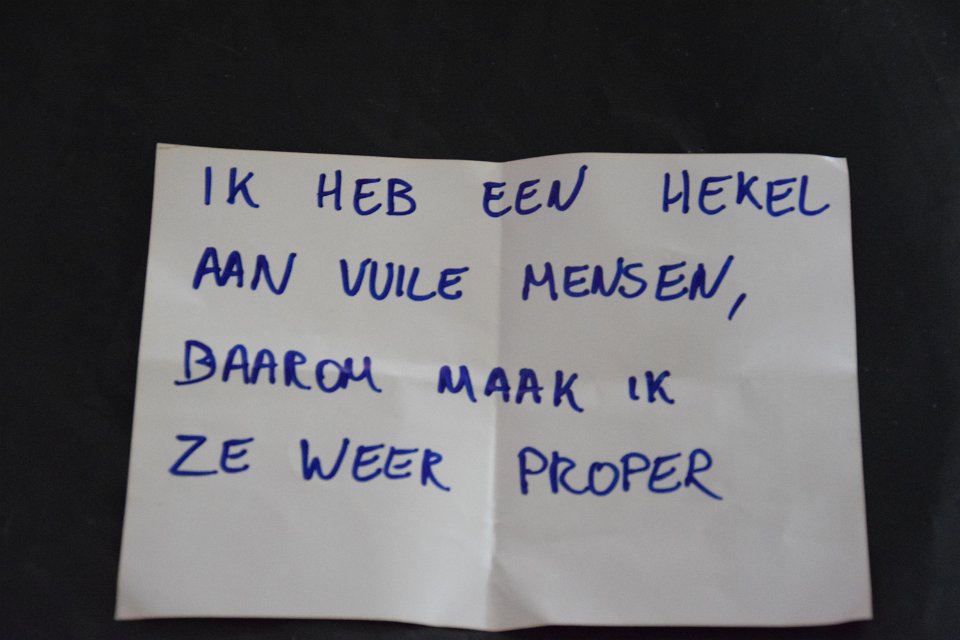 IK HEB EEN HEKEL
AAN VUILE MENSEN,
DAAROM MAAK IK
ZE WEER PROPER